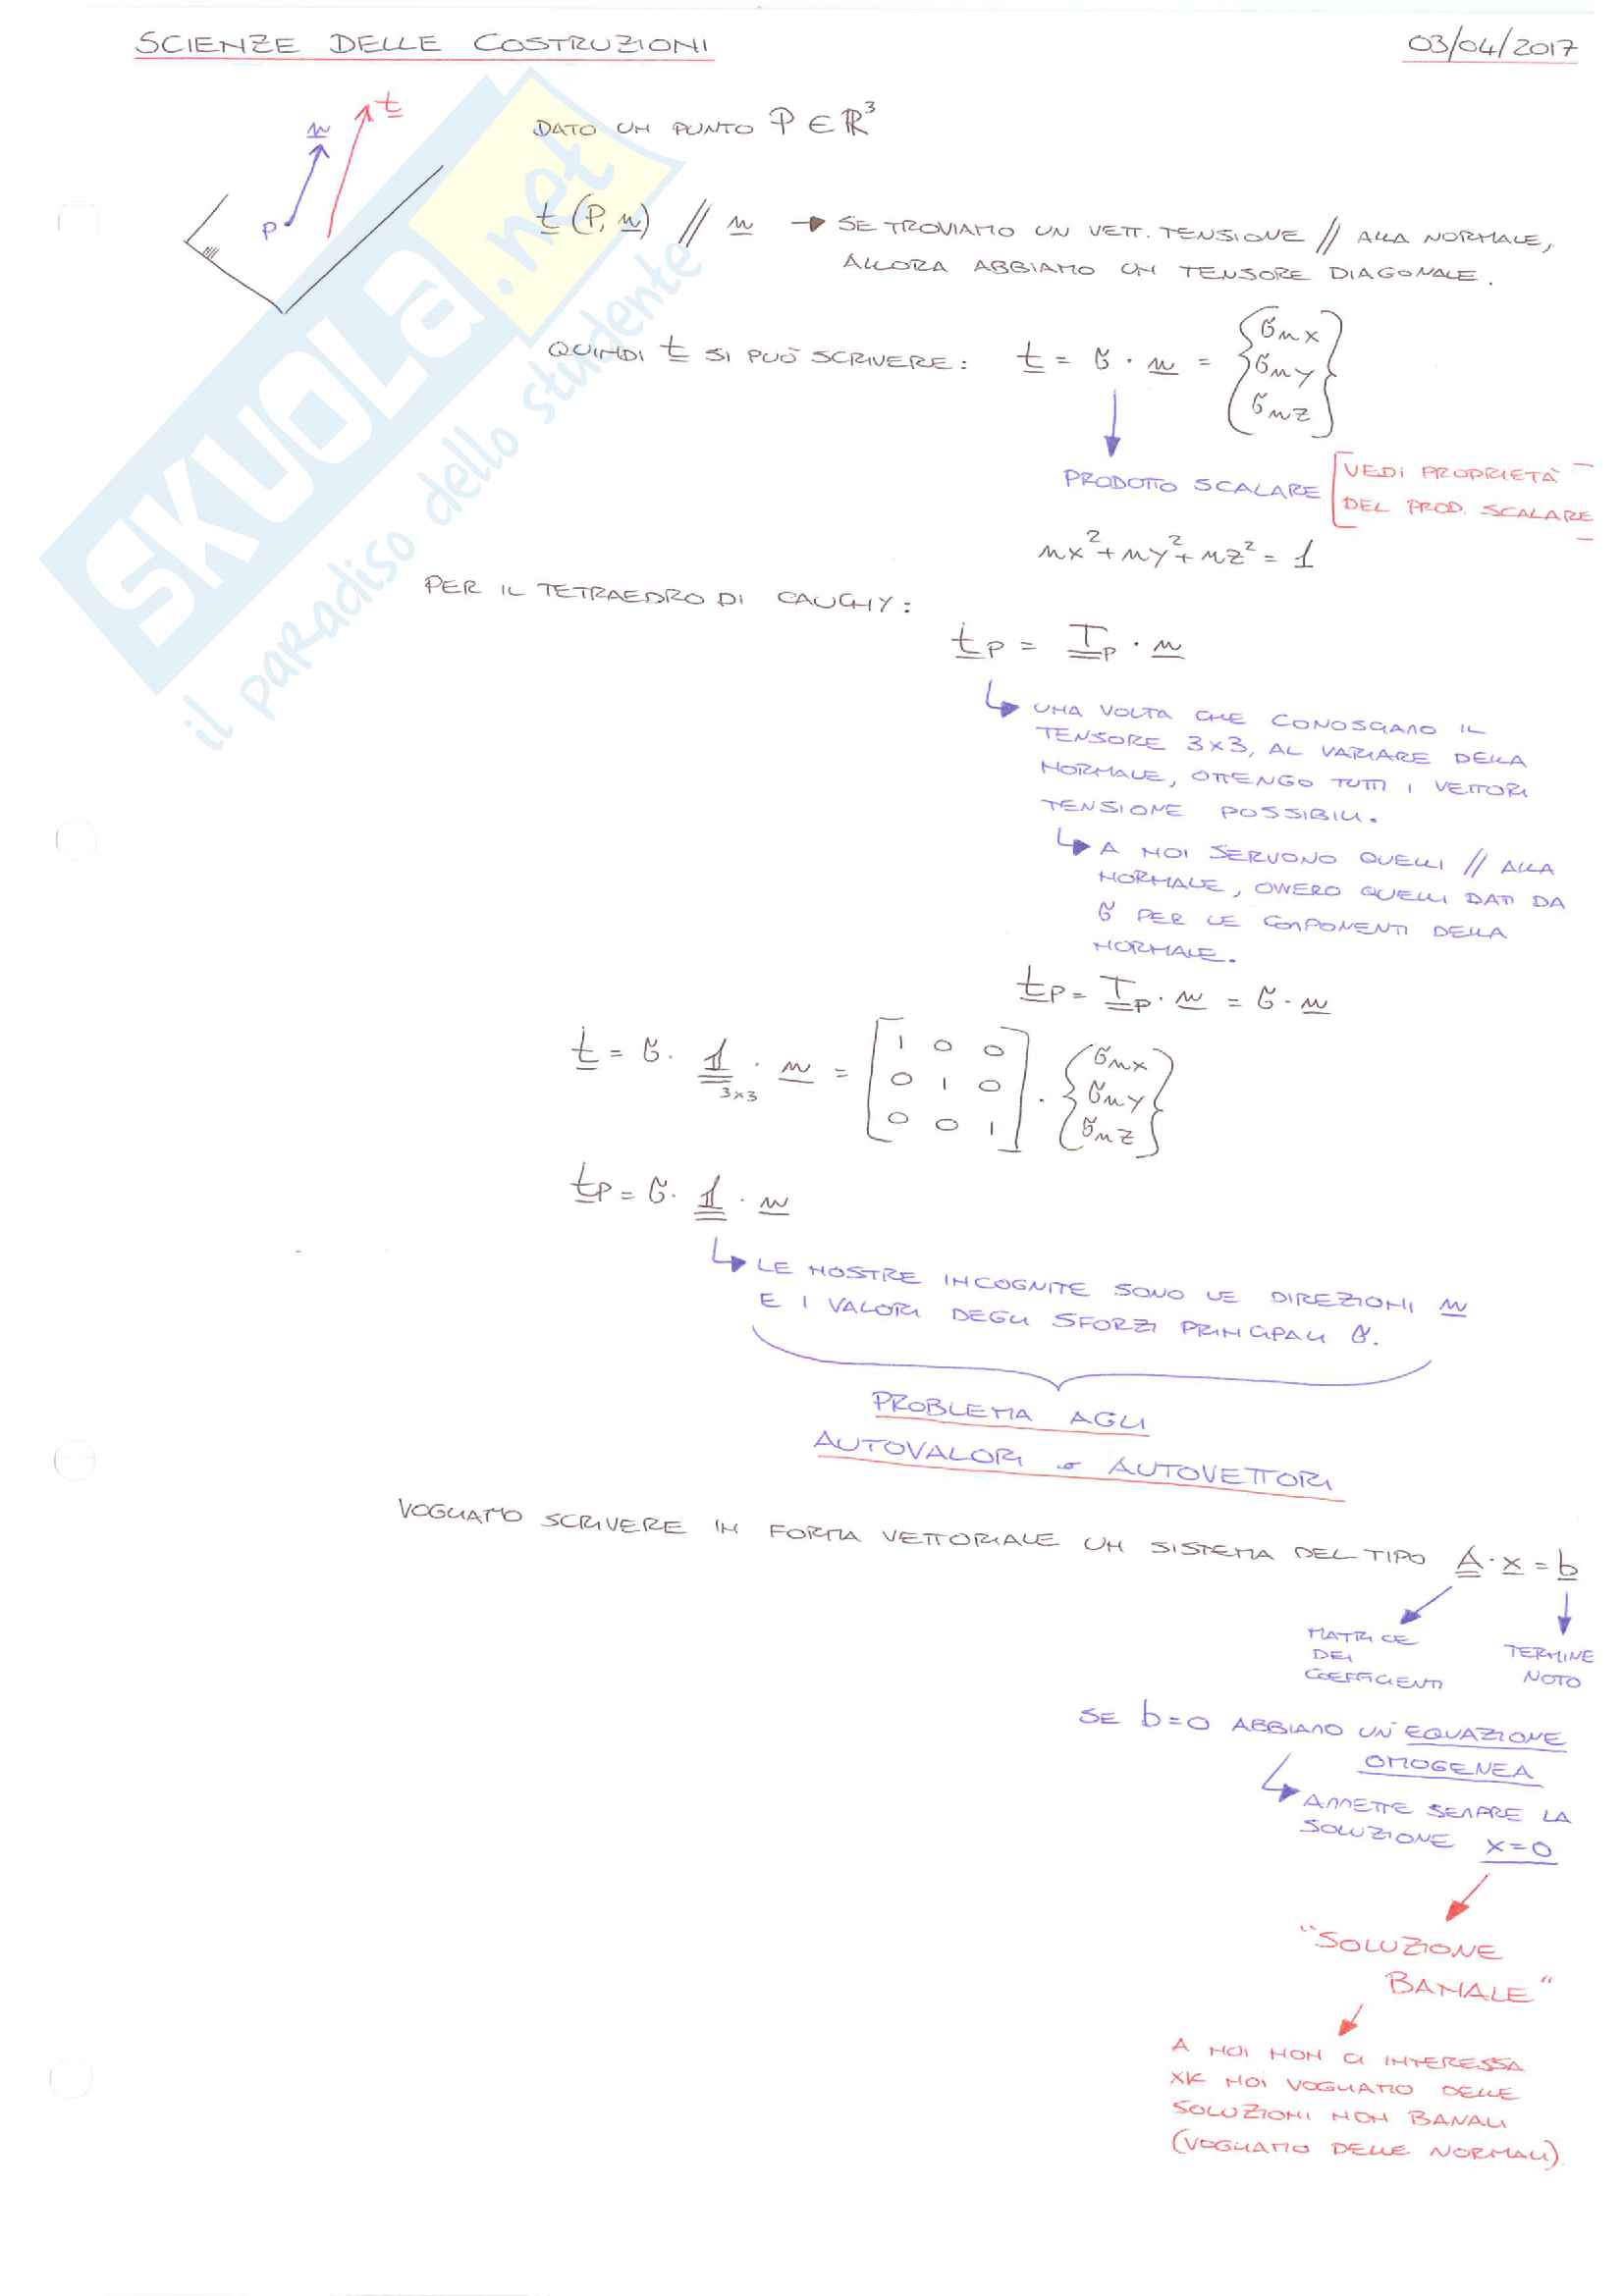 SCIENZE DELLE COSTRUZIONI
03/04/2017
t
n
P
DATO UN PUNTO P ∈ ℝ³
t (P, n) // n → SE TROVIAMO UN VETT. TENSIONE // ALLA NORMALE,
ALLORA ABBIAMO UN TENSORE DIAGONALE.
QUINDI t SI PUÒ SCRIVERE: t = σ · n = {σnx
σny
σnz}
PRODOTTO SCALARE [VEDI PROPRIETÀ
DEL PROD. SCALARE
nx² + ny² + nz² = 1
PER IL TETRAEDRO DI CAUCHY:
tP = TP · n
UNA VOLTA CHE CONOSCIAMO IL
TENSORE 3x3, AL VARIARE DELLA
NORMALE, OTTENGO TUTTI I VETTORI
TENSIONE POSSIBILI.
A NOI SERVONO QUELLI // ALLA
NORMALE, OVVERO QUELLI DATI DA
σ PER LE COMPONENTI DELLA
NORMALE.
tP = TP · n = σ · n
t = σ · 𝟙 3x3 · n = [1 0 0
0 1 0
0 0 1] · {σnx
σny
σnz}
tP = σ · 𝟙 · n
LE NOSTRE INCOGNITE SONO LE DIREZIONI n
E I VALORI DEGLI SFORZI PRINCIPALI σ.
PROBLEMA AGLI
AUTOVALORI e AUTOVETTORI
VOGLIAMO SCRIVERE IN FORMA VETTORIALE UN SISTEMA DEL TIPO A · x = b
MATRICE
DEI
COEFFICIENTI
TERMINE
NOTO
SE b=0 ABBIAMO UN'EQUAZIONE
OMOGENEA
AMMETTE SEMPRE LA
SOLUZIONE x=0
"SOLUZIONE
BANALE"
A NOI NON CI INTERESSA
XK NOI VOGLIAMO DELLE
SOLUZIONI NON BANALI
(VOGLIAMO DELLE NORMALI)
SKUOLA.net
il paradiso dello studente